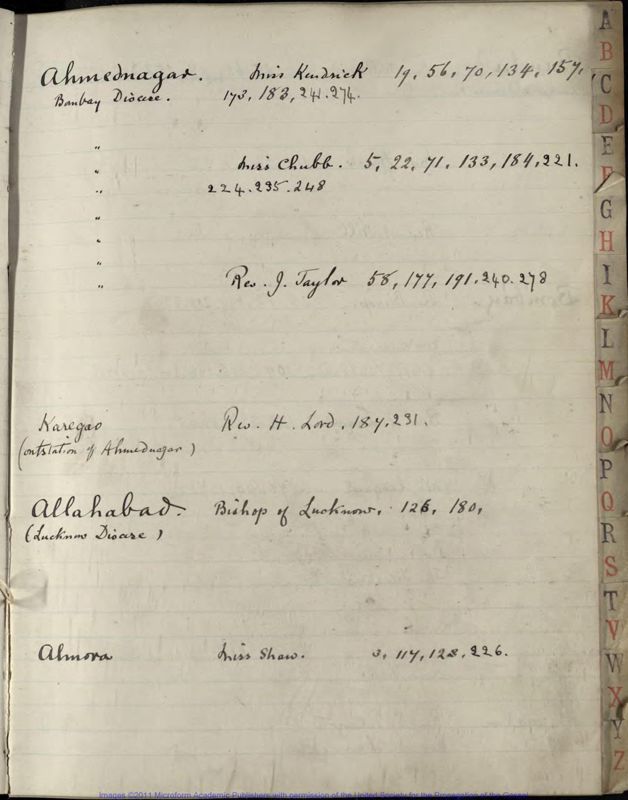 Ahmednagar. Miss Kendrick 19, 56, 70, 134, 157,
Bombay Diocese. 173, 183, 241. 274.
"
" Miss Chubb. 5, 22, 71, 133, 184, 221.
" 224. 235. 248
"
"
"
" Rev. J. Taylor 58, 177, 191. 240. 278
Karegao Rev. H. Lord. 187, 231.
(outstation of Ahmednagar)
Allahabad. Bishop of Lucknow. 126, 180,
(Lucknow Diocese)
Almora Miss Shaw. 3, 117, 128, 226.
A
B
C
D
E
F
G
H
I
K
L
M
N
O
P
Q
R
S
T
V
W
X
Y
Z
Images ©2011 Microform Academic Publishers with permission of the United Society for the Propagation of the Gospel